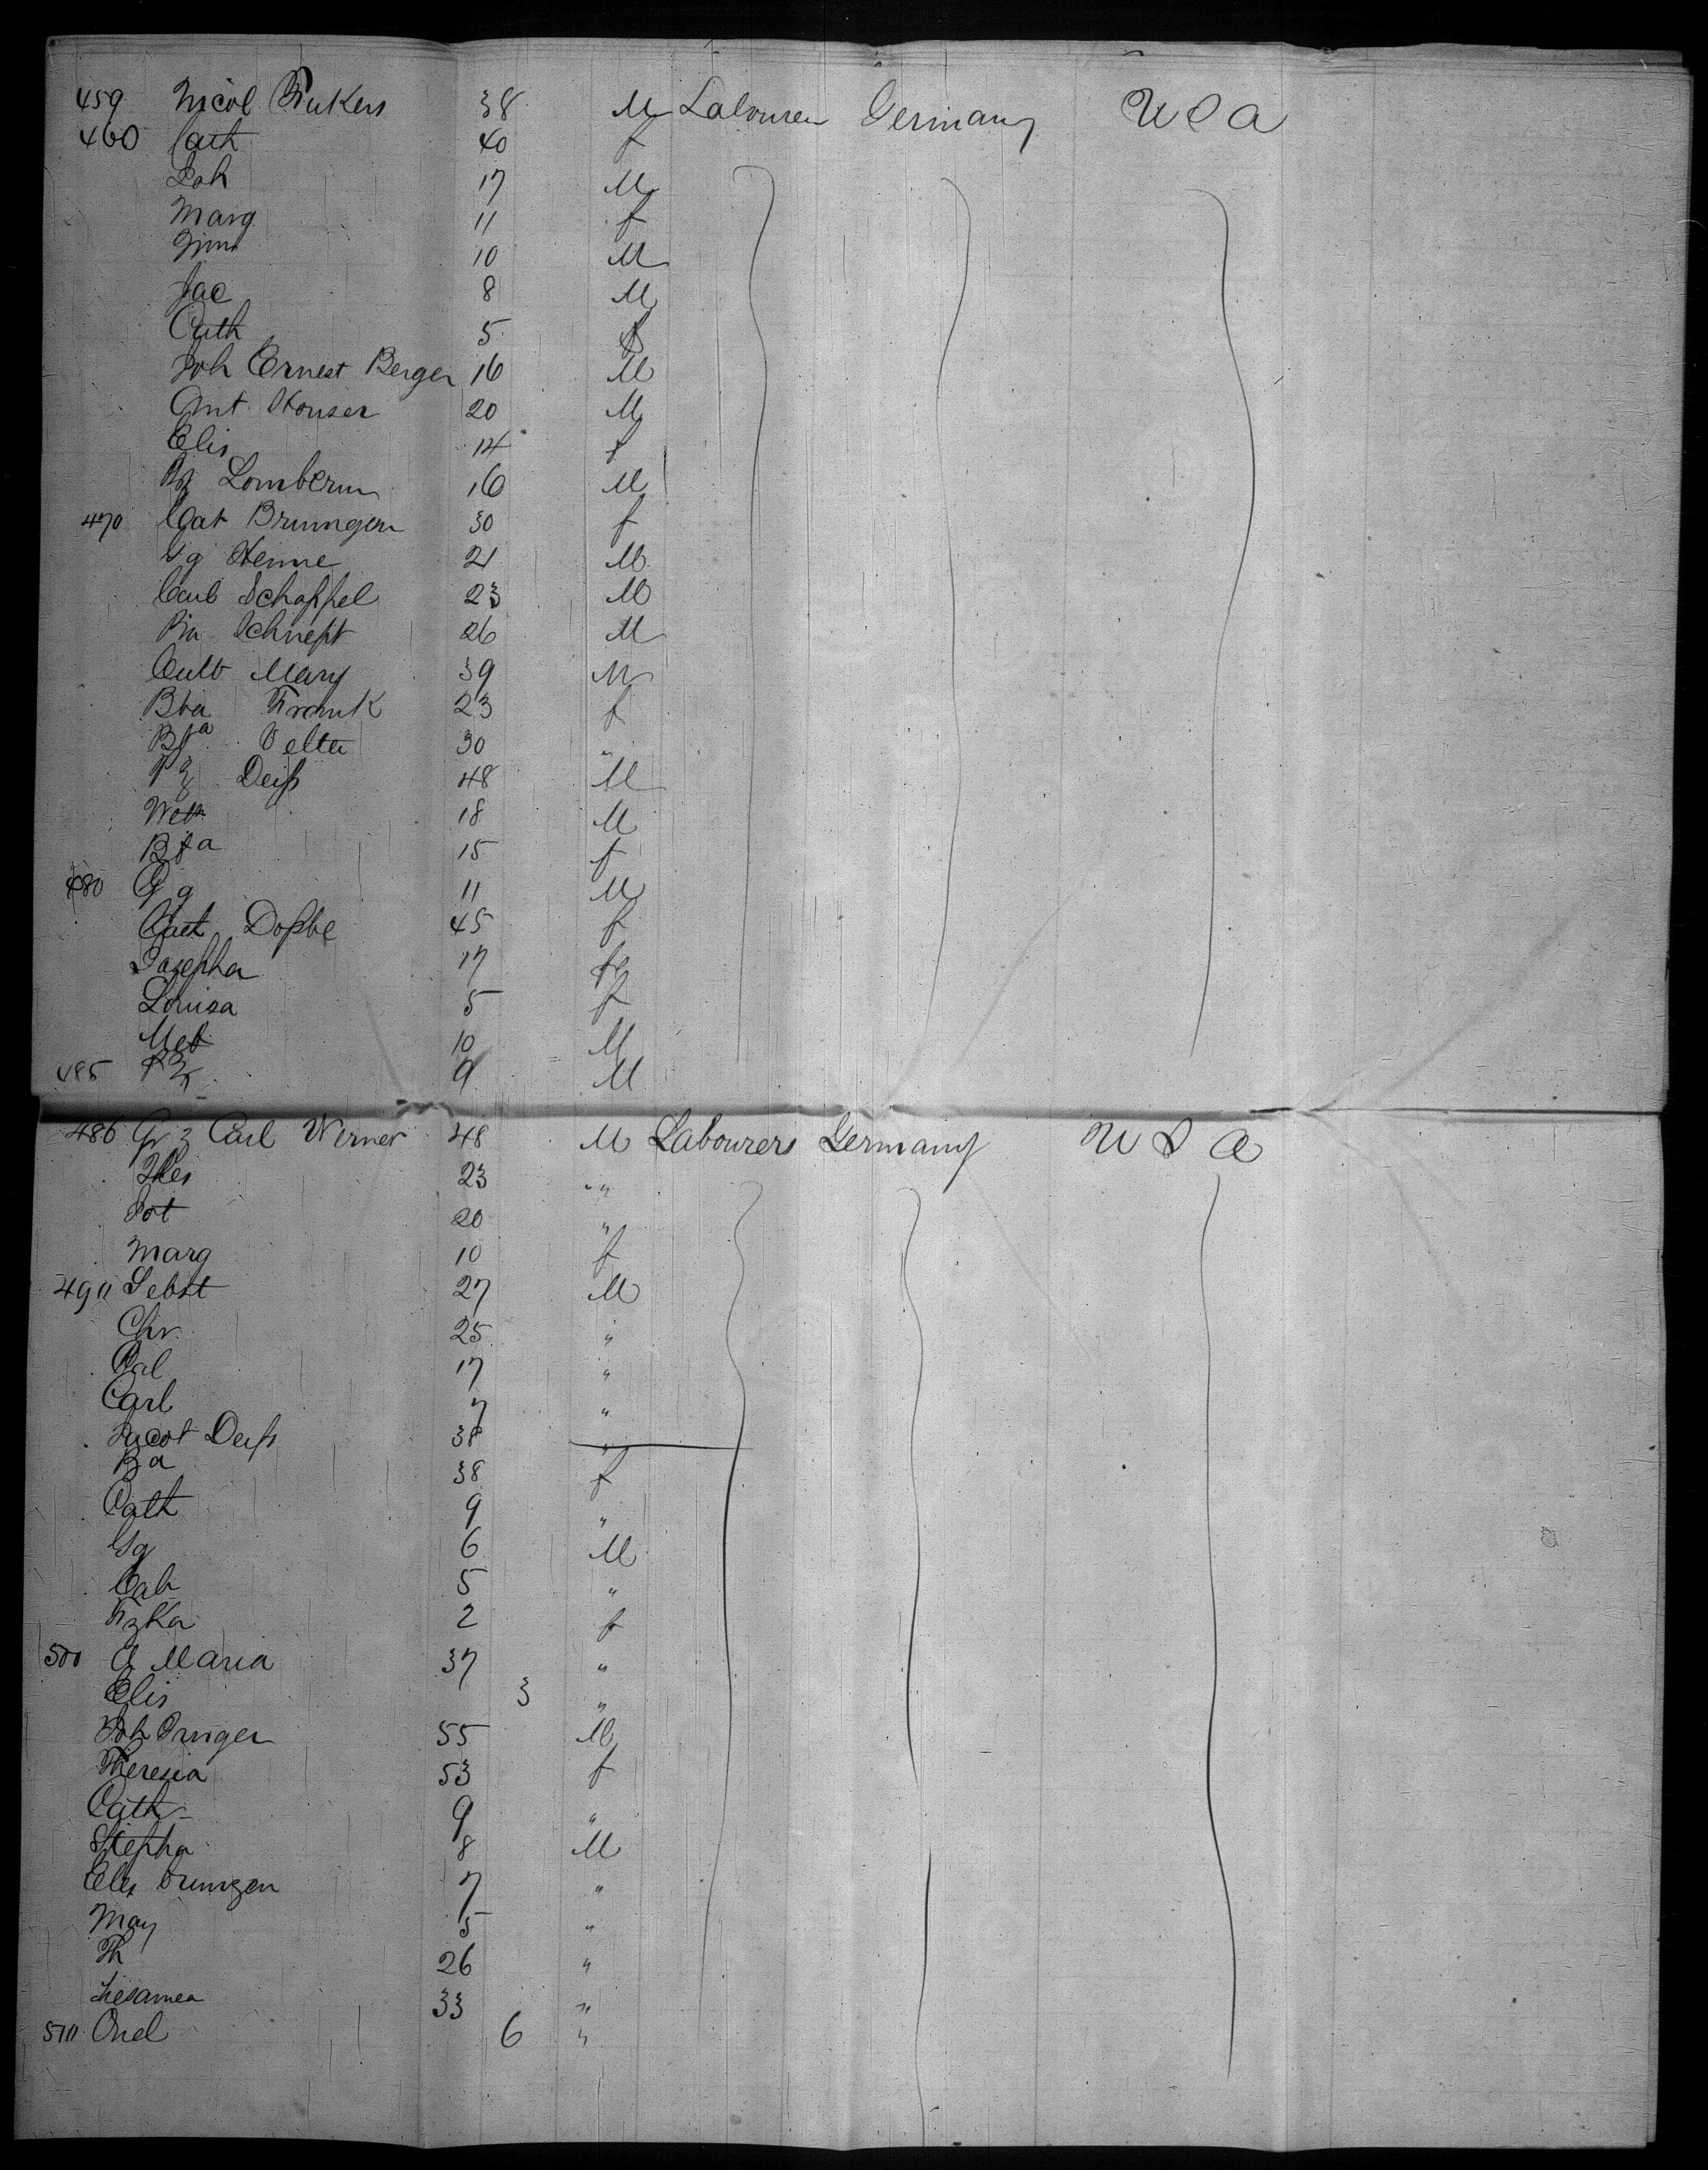 459 Nicol Rukers 38 M Labourer Germany U S A
460 Cath 40 f
Joh 17 M
Marg 11 f
10 M
Jac 8 M
Cath 5 f
Joh Ernest Berger 16 M
Ant Houser 20 M
Elis 14 f
Lomberm 16 M
470 Cat Brumgen 30 f
Gg Henne 21 M
Carl Schappel 23 M
Schnept 26 M
Mary 39 M
Bba Frank 23 f
Bba Velta 30 "
Fz Deiß 48 M
18 M
Bba 15 f
480 Gg 11 M
Cath 45 f
Josepha 17 f
Louisa 5 f
10 M
485 Fz 9 M
486 Carl Werner 48 M Labourers Germany U S A
Thes 23 "
20 "
Marg 10 f
490 Sebst 27 M
Chr 25 "
17 "
Carl 7 "
Jacob Deiß 38 "
Ba 38 f
Cath 9 "
Gg 6 M
5 "
Fzka 2 f
500 A Maria 37 "
Elis 3 "
Joh 55 M
Theresia 53 f
Cath 9 "
Stepha 8 M
7 "
May 5 "
Th 26 "
33 "
510 6 "